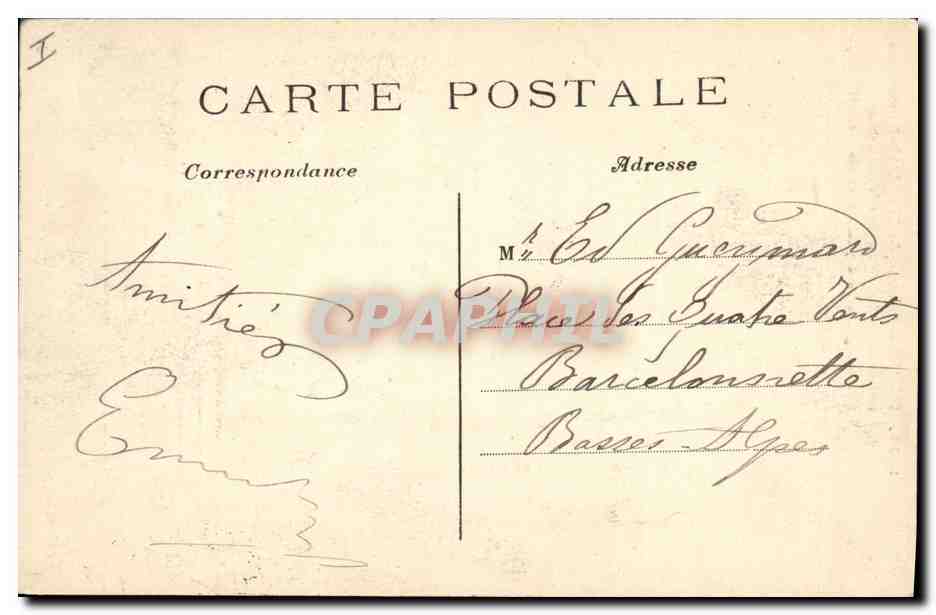 I
CARTE POSTALE
Correspondance
Adresse
Amitiés
Mr Ed Guerimard
Places des Quatre Vents
Barcelonnette
Basses-Alpes
CPAPHIL